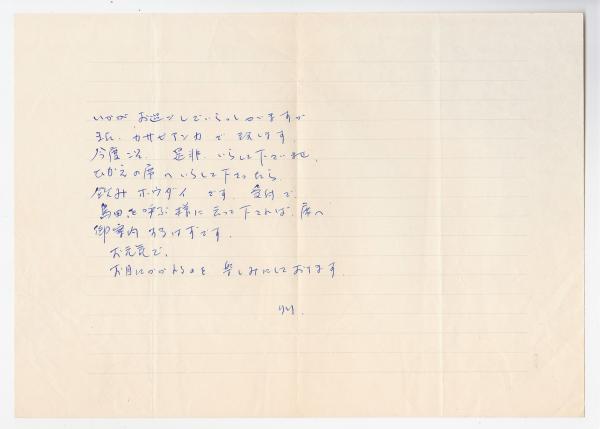 いかが お過ごしでいらっしゃいますか
また、カサブランカ で 致します。
今度こそ、是非、いらして下さいませ。
ひかえの席へいらして下さったら
飲み ホウダイ です。受付で、
島田を呼ぶ様に云って下されば、席へ
御案内 するはずです。
お元気で、
お目にかかれるのを 楽しみにしております。